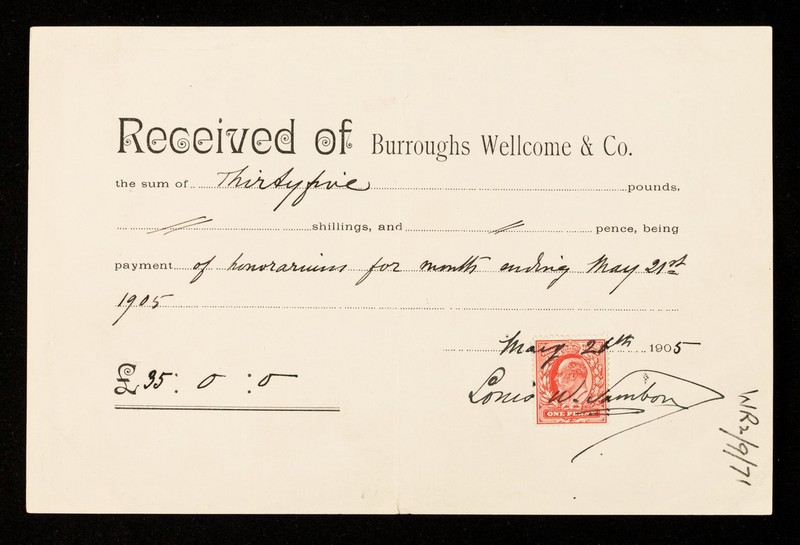 Received of Burroughs Wellcome & Co.
the sum of Thirtyfive pounds,
// shillings, and // pence, being
payment of honorarium for month ending May 21st
1905
May 1905
£ 35 : 0 : 0
Louis W. Sambon
ONE PENNY
WR2/9/71